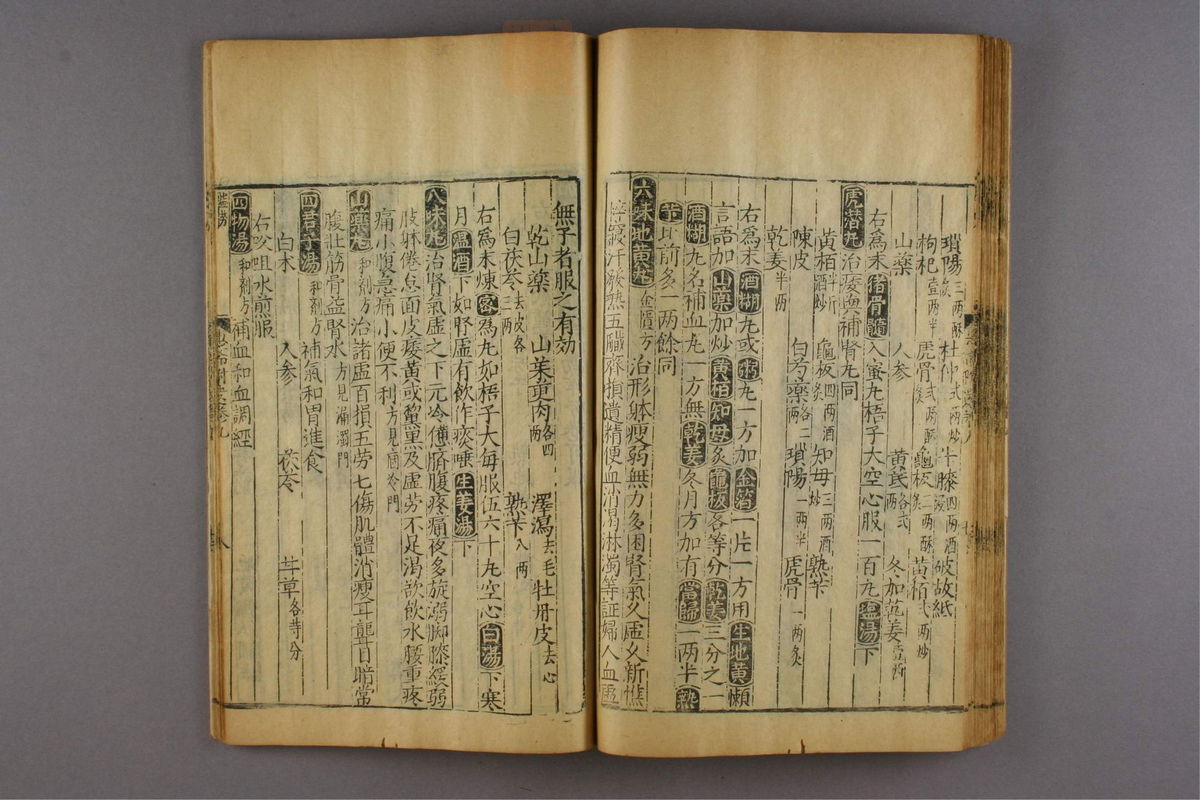 瑣陽三兩酥炙 杜仲弍兩炒 牛膝四兩酒浸 破故紙
枸杞壹兩半 虎骨弍兩酥炙 龜板二兩酥炙 黃栢弍兩炒
山藥 人參 黃芪各弍兩 冬加乾姜
右爲末猪骨髓入蜜丸梧子大空心服一百丸塩湯下
虎潛丸治痿與補腎丸同
黃栢半斤酒炒 龜板四兩酒炙 知母三兩酒炒 熟芐
陳皮 白芍藥各二兩 瑣陽一兩半 虎骨一兩炙
乾姜半兩
右爲末酒糊丸或粥丸一方加金箔一片一方用生地黃懶
言語加山藥加炒黃栢知母炙龜板各等分乾姜三分之一
酒糊丸名補血丸一方無乾姜冬月方加有當歸一兩半熟
芐比前多一兩餘同
六味地黃丸金匱方治形躰瘦弱無力多困腎氣久虛久新憔
悴寢汗發熱五臟齊損遺精便血消渴淋濁等証婦人血虛
無子者服之有効
乾山藥 山茱萸肉各四兩 澤瀉去毛 牡丹皮去心
白茯苓去皮各三兩 熟芐八兩
右爲末煉蜜爲丸如梧子大每服伍六十丸空心白湯下寒
月溫酒下如腎虛有飲作痰唾生姜湯下
八味丸治腎氣虛之下元冷憊臍腹疼痛夜多旋溺脚膝緩弱
肢躰倦怠面皮痿黃或黧黑及虛労不足渴欲飲水腰重疼
痛小腹急痛小便不利方見痼冷門
山藥丸和劑方治諸虛百損五劳七傷肌體消瘦耳聾目暗常
服壯筋骨益腎水方見漏濁門
四君子湯和劑方補氣和胃進食
白术 人參 茯苓 甘草各等分
右㕮咀水煎服
四物湯和劑方補血和血調經